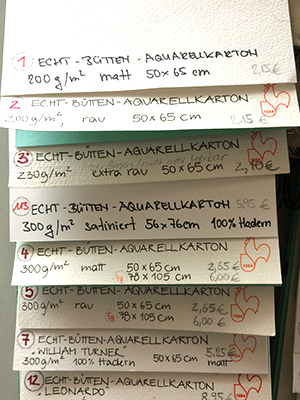 1 ECHT-BÜTTEN-AQUARELLKARTON
200 g/m² matt 50x65 cm 2,15€
2 ECHT-BÜTTEN-AQUARELLKARTON
200 g/m², rau 50x65 cm 2,15 €
3 ECHT-BÜTTEN-AQUARELLKARTON
230g/m² extra rau 50x65 cm 2,10€
113 ECHT-BÜTTEN-AQUARELLKARTON 5,95€
300 g/m² satiniert 56x76cm 100% Hadern
4 ECHT-BÜTTEN-AQUARELLKARTON
300g/m² matt 50x65 cm 2,65€
78x105 cm 6,00 €
1584
5 ECHT-BÜTTEN-AQUARELLKARTON
300 g/m² rau 50x65 cm 2,65€
78x105 cm 6,00 €
1584
7 ECHT-BÜTTEN-AQUARELLKARTON
"WILLIAM TURNER" 5,25€
300g/m² 100% Hadern 50x65 cm matt
12 ECHT-BÜTTEN-AQUARELLKARTON
"LEONARDO" 8,95€